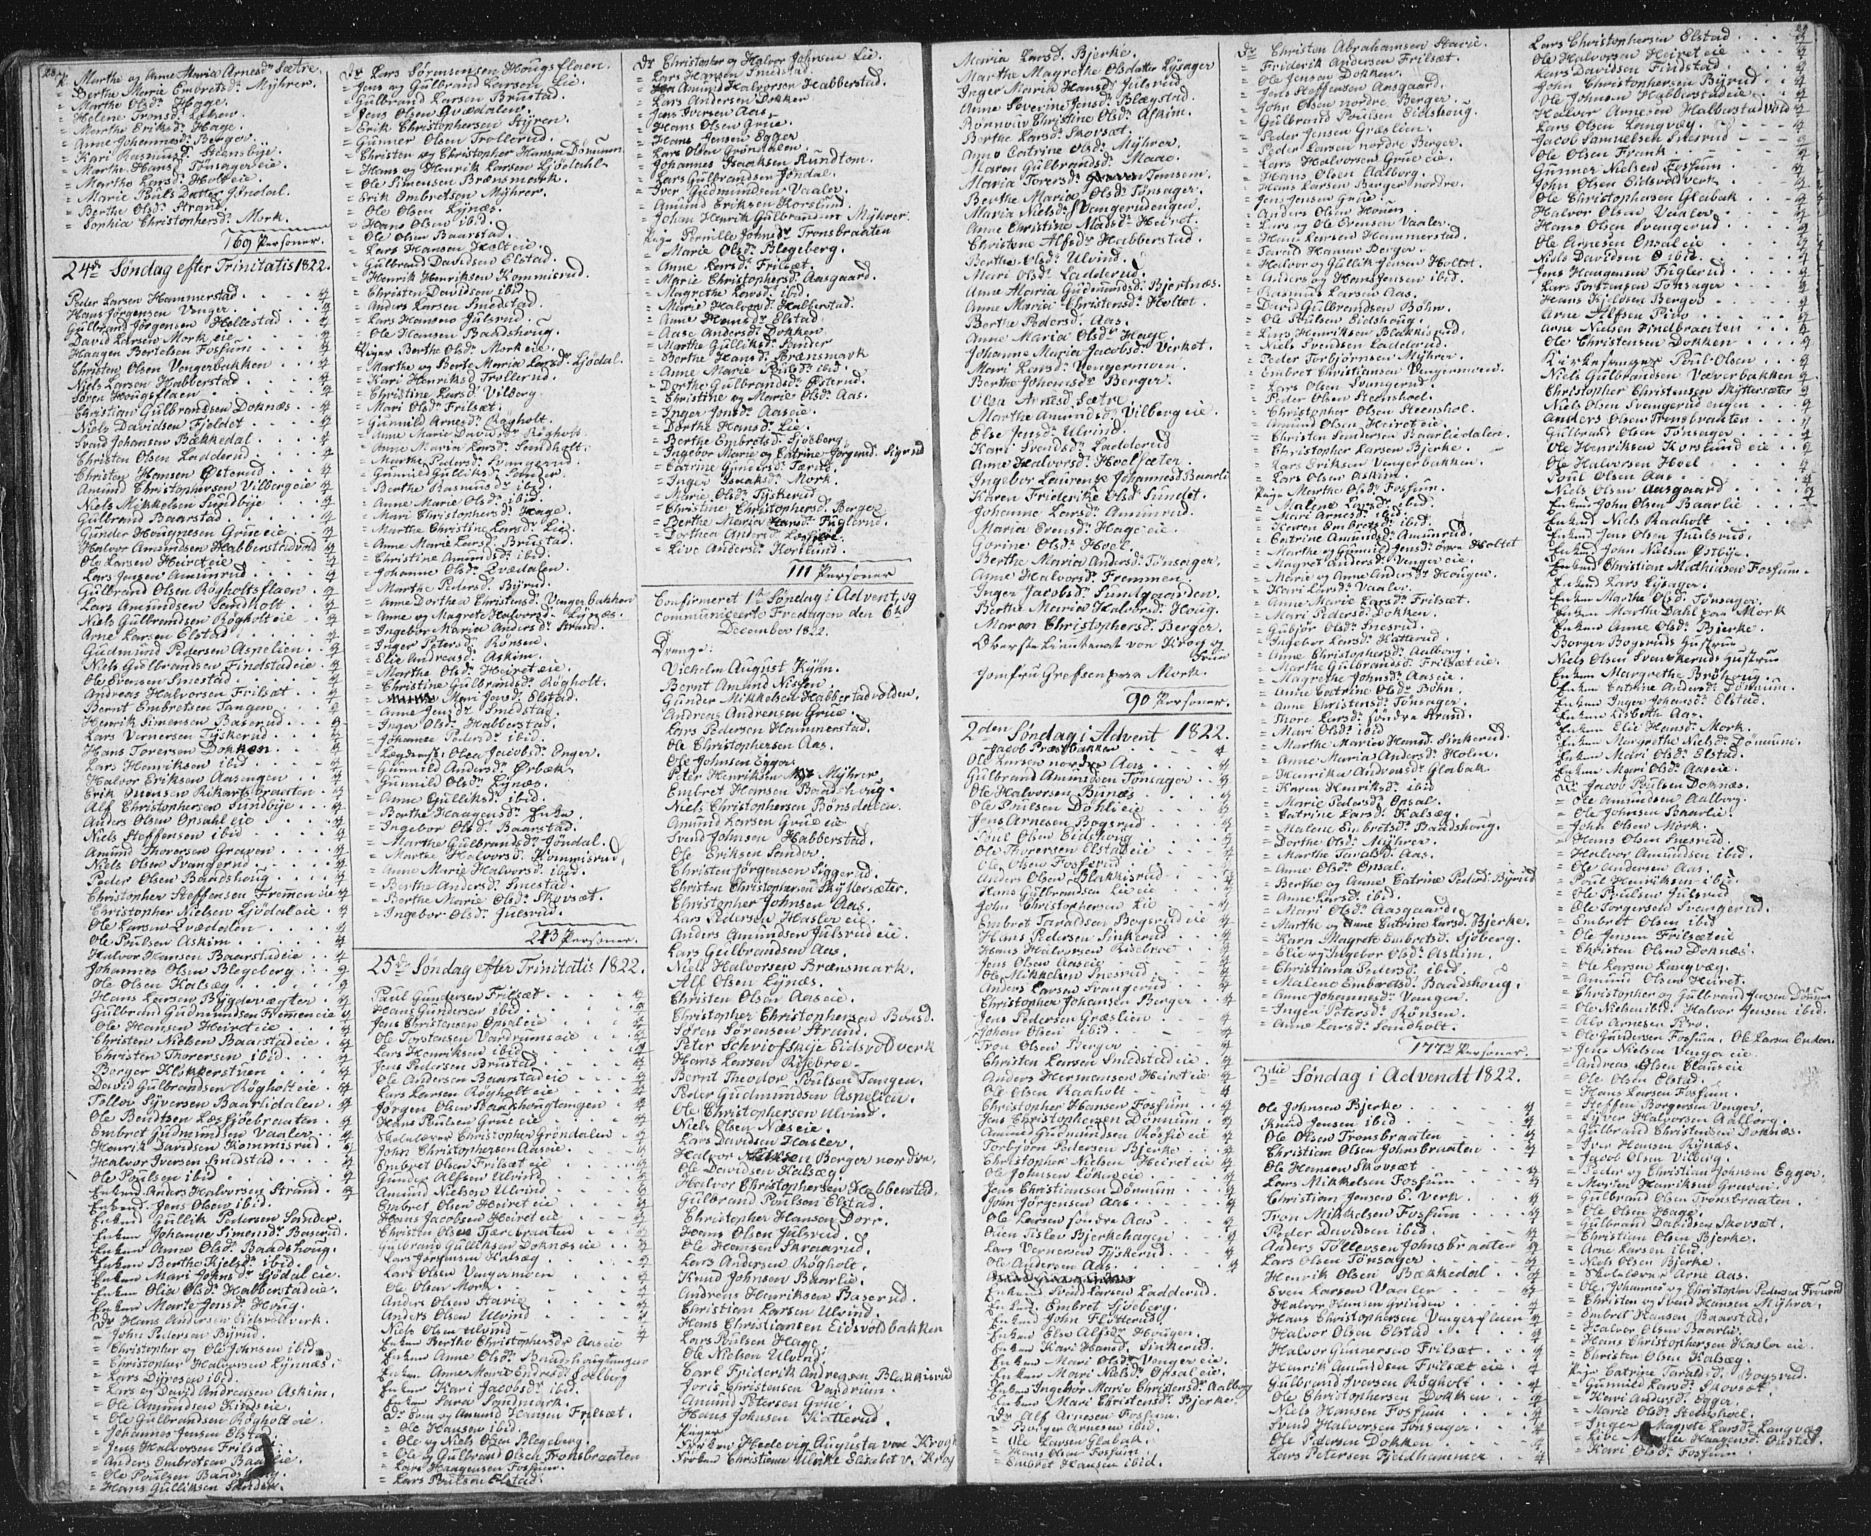 P. Marthe og Anne Maria Arnesdr Sætre.
Berthe Marie Embretsdr Myhrer.
= Marthe Olsdr Hage.
Helene Tronsdr Løken
= Marthe Eriksdr Hage.
= Anne Johannesdr Berger
= Kari Rasmusdr Steensbye
= Marthe Hansdr Tønsagereie
= Marthe Larsdr Holteie.
= Marie Pouls Datter Jøndal.
= Berthe Olsdr Strand.
= Sophia Christophersdr Mork.
169 Personer.
24de Søndag efter Trinitatis 1822.
Peder Larsen Hammerstad
Hans Jørgensen Venger
Gulbrand Jørgensen Hollestad
David Larsen Mork eie
Haagen Bertelsen Fossum
Christen Olsen Vengerbakken
Niels Larsen Habberstad
Søren Hougsflaen
Christian Gulbrandsen Doknæs
Niels Davidsen Fjeldet
Svend Johansen Bækkedal
Christen Olsen Ladderud
Christen Hansen Østerud
Amund Christophersen Vilberg eie
Niels Mikkelsen Sundbye
Gulbrand Baarstad
Gunder Hougnesen Grue eie
Halvor Amundsen Habberstadvold
Ole Larsen Heireteie
Lars Jensen Amunrud
Gulbrand Olsen Røgholtsflaen
Lars Amundsen Sandholt
Niels Gulbrandsen Røgholt eie
Arne Larsen Elstad
Gudmund Pedersen Aspelien
Niels Gulbrandsen Findstadeie
Ole Evensen Smestad
Andreas Halvorsen Frilsæt
Bernt Embretsen Tangen
Henrik Simensen Baserud
Lars Vernersen Tyskerud
Hans Torersen Dokken
Lars Henriksen ibid
Halvor Eriksen Aasengen
Alf Christophersen Sundbye
Anders Olsen Opsahl eie
Niels Steffensen ibid
Amund Thorersen Greven
Niels Olsen Svangerud
Peder Olsen Baadshoug
Christopher Steffensen Fremmen eie
Christopher Nielsen Ljødal eie
Ole Larsen Qvædalen
Ole Poulsen Askim
Halvor Hansen Baarstadeie
Johannes Olsen Blegeberg
Ole Olsen Kalsæg
Hans Larsen Bygdevægter
Gulbrand Gudmundsen Fremmen eie
Ole Hansen Heireteie
Christen Nielsen Baarstadeie
Christen Thorersen ibid
Berger Klokkerstuen
David Gulbrandsen Røgholt eie
Tollov Syversen Baarlidalen
Ole Bendtsen Løsjøebraaten
Embret Gudmundsen Vaaler
Henrik Davidsen Kommisrud
Halvor Iversen Smestad
Ole Poulsen ibid
Enkem. Anders Halvorsen Strand
Enkem. Jens Olsen ibid.
Enkem. Gullik Pedersen Sander.
Enken Johanne Simensdr Baserud.
Enken Anne Olsdr Baadshoug.
Enken Berthe Kjelsdr ibid.
Enken Mari Johnsdr Ljødal eie.
Enken Olia Olsdr Habberstadeie.
Enken Marie Jensdr Houg.
Dr Hans Andersen Eidsvoldverk.
= John Pedersen Byrud.
= Christopher og Ole Johnsen ibid.
= Christopher Halvorsen Lynæs.
= Lars Dyresen ibid.
= Lars og David Andreasen Askim.
= Ole Amundsen Kindseie.
= Ole Gulbrandsen Røgholt eie.
= Johannes Jensen Elstad.
= Jens Halvorsen Frilsæt
= Anders Embretsen Baarlie
= Ole Poulsen Baadshoug.
= Hans Gulliksen Sander.
Dr Lars Sørensensen Hougsflaen.
= Jens og Gulbrand Larsen Lie.
= Gulbrand Larsen Brustad.
Jens Olsen Qvædalen.
Erik Christophersen Styren.
= Gunner Olsen Trollerud.
= Christen og Christopher Hansen Dønnum.
= Hans og Henrik Larsen Ljødahl
= Ole Simensen Brænsmark.
= Erik Embretsen Myhrer.
= Ole Olsen Lynæs.
= Hans Olsen ibid.
= Ole Olsen Baarstad.
= Lars Hansen Holteie.
= Gulbrand Davidsen Elstad.
= Henrik Henriksen Kommisrud.
= Christen Davidsen ibid.
= Anders Larsen Smedstad.
= Lars Hansen Julsrud.
= Ole Hansen Baadshoug.
Piger Berthe Olsdr Mork eie.
= Marthe og Berte Maria Larsdr Ljødal.
= Kari Henriksdr Trollerud.
= Christine Larsdr Vilberg
= Mari Olsdr Frilsæt.
= Gunnild Arnesdr Røgholt.
= Anne Marie Davidsdr Røgholt.
= Anne Maria Larsdr Sandholt.
= Marthe Pedersdr Svangerud.
= Gunnild Gulliksdr Sander.
= Berthe Rasmusdr ibid.
= Anne Marie Olsdr ibid.
= Mari Christophersdr Hage.
= Marthe Christine Larsdr Lie.
= Anne Marie Larsdr Brustad.
= Christine Amundsdr ibid.
= Johanne Olsdr Qvædalen.
= Marthe Pedersdr Byrud.
= Anne Dorthea Christensdr Vengerbakken
= Anne og Magrete Halvorsdr Lynæs.
= Ingebor Maria Andersdr Strand.
= Inger Petersdr Rønsen.
= Elie Andreasdr Askim.
= Marthe Olsdr Heireteie.
= Christine Gulbrandsdr Røgholt.
= Mari Jensdr Elstad.
= Anne Jensdr Smedstad.
= Inger Olsdr Habberstad.
= Johanne Pedersdr ibid.
= Olea Jacobsdr Enger.
= Gunnild Andersdr Ørbæk.
= Gunnild Olsdr Lynæs.
= Anne Gulliksdr ibid.
= Berthe Haagensdr Enke.
= Ingebor Olsdr Baarstad.
= Marthe Gulbrandsdr Jøndal.
= Marthe Halvorsdr Kommisrud.
= Anne Marie Halvorsdr ibid.
= Berthe Andersdr Smestad.
= Berthe Marie Olsdr Skovsæt.
= Ingebor Olsdr Julsrud.
243 Personer.
25de Søndag efter Trinitatis 1822.
Paul Gundersen Frilsæt
Hans Gundersen ibid
Jens Christensen Opsaleie
Ole Torstensen Vardrumseie
Lars Henriksen ibid
Jens Pedersen Brustad
Ole Andersen Baarstadeie
Lars Larsen Røgholt eie
Jørgen Olsen Baadshougtangen
Hans Poulsen Grue eie
Skolelærer Christopher Grøndalen
John Christophersen Aaseie
Embret Olsen Frilsæt eie
Gunder Alfsen Ulvind
Amund Nielsen Ulvind
Embret Olsen Heiret eie
Hans Jacobsen Heiret eie
Christen Olsen Tjærebraaten
Gulbrand Gulliksen Doknæseie
Lars Jørgensen Kalsæg
Lars Olsen Vengermoen
Ole Olsen Mork
Anders Olsen Stavie
Anders Olsen Ulvind
Niels Olsen Ulvind
Enken Berthe Christophersdr Aaseie
Enken Anne Olsdr Baadshougtangen
Enken Anne Marie Endresdr Sølberg
Enken Kari Jacobsdr ibid.
Enken Sara Sandmark.
Dr Even og Amund Hansen Frilsæt.
= Ole Hansen ibid.
= Ole og Niels Olsen Blegeberg.
= Ole og Gulbrand Olsen Tronsbraaten
= Lars Haagensen Fossum.
= Lars Poulsen Elstad.
Dr Christopher og Halvor Johnsen Lie.
= Lars Hansen Smedstad.
= Amund Halvorsen Habberstad.
= Lars Andersen Dokken
= Jens Iversen Aas.
= Hans Olsen Grue.
= Hans Jensen Egger
= Lars Olsen Grønokken.
= Johannes Isaaksen Rundtom.
= Lars Gulbrandsen Jøndal.
= Iver Gudmundsen Vaaler.
= Amund Eriksen Korslund.
= Johan Henrik Gulbrandsen Myhrer.
Pige Pernille Johnsdr Tronsbraaten
= Marie Olsdr Blegeberg.
= Anne Larsdr Frilsæt.
= Marie Christophersdr Aasgaard.
= Magrethe Larsdr ibid.
= Mari Halvorsdr Habberstad.
= Anne Hansdr Elstad.
= Aase Andersdr Dokken.
= Marthe Gulliksdr Sander
= Berthe Hansdr Brænsmark
= Dorthe Gulbrandsdr Østerud.
= Christine og Marie Olsdr Aas.
= Inger Jonsdr Aaseie.
= Dorthe Hansdr Lie.
= Berthe Embretsdr Sjøeberg.
= Ingebor Marie og Catrine Jørgensdr Sigrud
= Catrine Gundersdr Tærud.
= Inger Isaaksdr Mork.
= Marie Olsdr Tyskerud
= Christine Christophersdr Berger
= Berthe Maria Hansdr Fuglerud.
= Live Andersdr Horslund.
111 Personer
Confirmeret 1te Søndag i Advent, og
communiceerte Fredagen den 6te
December 1822.
Drenge:
Vilhelm August Kyhn.
Bernt Amund Nissen.
Gunder Mikkelsen Habberstadvolden.
Andreas Andreasen Grue.
Lars Pedersen Hammerstad.
Ole Christophersen Aas.
Ole Johnsen Egger
Peter Henriksen Myhrer.
Embret Hansen Baadshoug.
Niels Christophersen Bønsdalen.
Amund Larsen Grue eie
Svend Johnsen Habberstad.
Ole Eriksen Sander.
Christen Jørgensen Sigerud.
Christen Christophersen Skyttersæter.
Christopher Johnsen Aas.
Lars Pedersen Hasler eie.
Anders Amundsen Julsrud eie.
Lars Gulbrandsen Aas.
Niels Halvorsen Brænsmark.
Alf Olsen Lynæs.
Christen Olsen Aaseie.
Christopher Christophersen Bønsd.
Søren Sørensen Strand.
Peter Schriofskye Eidsvoldverk
Hans Larsen Risebroe.
Bernt Theodor Poulsen Tangen.
Peder Gudmundsen Aspelien.
Ole Christophersen Ulvind.
Niels Olsen Næseie.
Lars Davidsen Hasler.
Halvor Nielsen Berger nordre.
Ole Davidsen Kalsæg.
Halvor Christophersen Habberstad.
Gulbrand Poulsen Elstad.
Christopher Hansen Dorr.
Hans Olsen Julsrud.
Ole Hansen Skreærud.
Lars Andersen Røgholt.
Knud Johnsen Baarlie.
Andreas Henriksen Baserud.
Christian Larsen Ulvind.
Hans Christiansen Eidsvoldbakken
Lars Poulsen Hage.
Ole Nielsen Ulvind.
Carl Friderik Andreasen Blakkisrud
Joris Christensen Vardrum.
Amund Petersen Grue.
Hans Johnsen Katterud.
Piger.
Frøken Hedevig Augusta von Krogh
Frøken Christiane Ulrike Elskelst v. Krog
Maria Larsdr Bjerke.
Marthe Magrethe Olsdatter Lysager
Inger Marie Hansdr Julsrud
Anne Severine Jensdr Blegstad.
Børnouiv Christine Olsdr Askim.
Berthe Larsdr Skovsæt.
Anne Catrine Olsdr Myhrer.
Maren Gulbrandsdr Maae.
Maria Torersdr Tomsen.
Benthe Maria Olsdr Tønsager.
Maria Nielsdr Svangerudengen.
Anne Christine Madsdr Heiret.
Christine Alfsdr Habberstad.
Berthe Olsdr Ulvind.
Mari Olsdr Ladderud.
Anne Maria Gudmundsdr Bjertnæs.
Anne Maria Christensdr Holtet.
Berthe Pedersdr Aas.
Anne Maria Olsdr Hage.
Johanne Maria Jacobsdr Verket.
Mari Larsdr Vengermoen.
Berthe Johansdr Berger.
Olea Arnesdr Sætre.
Marthe Amundsdr Vilberg eie.
Else Jensdr Ulvind.
Kari Svendsdr Ladderud
Anne Halvorsdr Hoelsæter.
Ingebor Laurense Johannesdr Baarli
Karen Friderike Olsdr Sundet.
Johanne Larsdr Amunrud.
Maria Evensdr Hage eie.
Gorine Olsdr Hoel.
Berthe Maria Andersdr Tønsager.
Anne Halvorsdr Fremmen.
Inger Jacobsdr Sundgaarden.
Berthe Maria Halvorsdr Houg.
Maren Christophersdr Berger.
Oberstelieutenant von Krog og
Frue
Jomfru Grefsen paa Mork.
90 Personer.
2den Søndag i Advent 1822.
Jacob Præstbakken
Ole Larsen nordre Aas
Gulbrand Amundsen Tønsager
Ole Halvorsen Bunæs
Ole Poulsen Døhlieie
Jens Arnesen Bogsrud
Poul Olsen Eidshoug
Ole Thorersen Elstadeie
Ole Olsen Fosserud
Anders Olsen Blakkisrud
Hans Gulbrandsen Lie eie
John Christophersen Lie
Embret Taraldsen Bogsrud eie
Hans Pedersen Sinkerud
Hans Halvorsen Risebroe
Jens Olsen Aaseie
Ole Mikkelsen Snesrud
Anders Larsen Svangerud
Christopher Johansen Berger
Jens Pedersen Græslien
Johan Olsen ibid
Tron Olsen Berger
Christen Larsen Smedstad eie
Anders Hermansen Heiret eie
Ole Olsen Raaholt
Christopher Hansen Fossum
Jens Christophersen Dønnum
Amund Gudmundsen Røsjie eie
Torbjørn Pedersen Bjerke
Christopher Nielsen Heiret eie
Ole Johnsen Løkneeie
Jens Christiansen Dønnum
John Jørgensen Aas
Ole Larsen søndre Aas
Lars Vernersen Tyskerud
Ole Andersen Aas
Enkem. Svend Larsen Ladderud
Enkem. Embret Sjøeberg.
Enkem. John Flutterud.
Enken Else Alfsdr Hougen.
Enken Kari Hansdr Sinkerud.
Enken Mari Olsdr Venger eie.
Enken Mari Nielsdr Opsal eie.
Enken Ingebor Marie Christensdr Aalborg
Enken Mari Christensdr Bjerke.
Dr Alf Arnesen Fossum.
= Torger Arnesen ibid.
= Ole Larsen Glabak.
= Hans Olsen Fossum.
= Embret Hansen ibid.
Dr Christen Abrahamsen Stavie.
= Friderik Andersen Frilsæt.
= Ole Jensen Dokken.
= Jens Steffensen Aasgaard.
= John Olsen nordre Berger.
= Gulbrand Poulsen Eidshoug.
= Peder Jensen Græslien.
= Peder Larsen nordre Berger.
= Lars Halvorsen Grue eie.
= Hans Olsen Aalborg.
= Hans Larsen Berger nordre.
= Jens Jensen Grue.
= Anders Olsen Houen.
= Lars og Ole Evensen Vaaler.
= Hans Larsen Hammerstad.
= Svend Hansen Berger.
= Halvor og Gullik Jensen Holtet.
= Anders og Hans Jensen ibid
= Rasmus Larsen Aas.
= David Gulbrandsen Bøhn.
= Ole Poulsen Eidshoug.
= Lars Henriksen Blakkisrud.
= Niels Svendsen Ladderud.
= Peder Torbjørnsen Myhrer.
= Embret Christiansen Vengermoen.
= Lars Olsen Svangerud.
= Peder Olsen Steenshoel.
= Christopher Olsen Steenshol.
= Amund Olsen Heiret eie.
= Christen Andersen Baarliedalen.
= Christopher Larsen Bjerke.
= Lars Eriksen Vengerbakken.
= Lars Olsen Askim.
Pige Marthe Olsdr Fossum.
= Malene Larsdr ibid.
= Mari Arnesdr ibid.
= Karen Embretsdr ibid.
= Catrine Amundsdr Amunrud.
= Marthe og Gunnild Jensdr øvre Holtet
= Magret Andersdr Venger eie.
= Marie og Anne Andersdr Hougen.
= Kari Larsdr Vaaler.
= Anne Marie Larsdr Frilsæt.
= Mari Pedersdr Dokken.
= Gubjør Olsdr Snesrud.
= Ingebor Larsdr Katterud.
= Anne Christophersdr Aalborg.
= Marthe Gulbrandsdr Frilsæt eie.
= Magrethe Johnsdr Aaseie.
= Anne Catrine Olsdr Bøhn.
= Anne Christensdr Tønsager.
= Thore Larsdr søndre Strand.
= Mari Olsdr ibid
= Marthe Maria Hansdr Sinkerud.
= Anne Maria Andersdr Holm.
= Henrika Andreasdr Glabak
= Karen Henriksdr ibid
= Marie Pedersdr Opsal.
= Catrine Larsdr Kalsæg.
= Malene Embretsdr Baadshoug.
= Dorthe Olsdr Myhrer.
= Marthe Taralsdr Aas.
= Anne Olsdr Opsal.
= Berthe og Anne Catrine Pedersdr Byrud
= Anne Larsdr ibid.
= Mari Olsdr Aasgaard.
= Marthe og Anne Catrine Larsdr Bjerke.
= Karn Magrete Embretsdr Sjøberg.
= Elie og Ingebor Olsdr Askim.
= Christiana Pedersdr ibid.
= Malene Embretsdr Baadshoug.
= Anne Johannesdr Vengen.
= Inger Petersdr Rønsen.
= Anne Larsdr Sandholt.
177½ Personer.
3die Søndag i Advendt 1822.
Ole Johnsen Bjerke
Knud Jensen ibid
Ole Olsen Tronsbraaten
Christian Olsen Johnsbraaten
Ole Hansen Skovsæt
Lars Mikkelsen Fossum
Christian Jensen E. Verk
Tron Mikkelsen Fossum
Peder Davidsen ibid
Anders Tøllersen Johnsbraaten
Lars Olsen Tønsager
Henrik Olsen Bækkedal
Even Larsen Vaaler
Halvor Hansen Grinden
Hans Christophersen Vengerfluen
Halvor Olsen Elstad
Halvor Gunnersen Frilsæt
Henrik Amundsen Frilsæt eie
Gulbrand Iversen Røgholt
Ole Christophersen Dokken
Niels Hansen Fossum
Svend Halvorsen Tønsager
Ole Pedersen Dokken
Lars Petersen Fjeldhammer
Lars Christophersen Elstad
Ole Halvorsen Heiret eie
Lars Davidsen Findstad
John Christophersen Byrud
Ole Johnsen Habberstadeie
Halvor Arnesen Habberstadvold
Lars Olsen Langvæg
Jacob Samuelsen Snesrud
Ole Olsen Frank
Gunner Nielsen Fossum
John Olsen Eidsvoldverk
Ole Christophersen Glabak
Halvor Olsen Vaaler
Hans Olsen Svangerud
Ole Arnesen Opsal eie
Niels Davidsen ibid
Jens Haagensen Fuglerud
Lars Torstensen Tønsager
Hans Kjeldsen Berger
Arne Alfsen Piro
Arne Nielsen Findbraaten
Ole Christensen Dokken
Kirkesanger Poul Olsen
Niels Gulbrandsen Væverbakken
Christopher Christensen Skyttersæter
Niels Olsen Svangerudengen
Anders Olsen Tronsbraaten
Gulbrand Olsen Tønsager
Ole Henriksen Korslund eie
Ole Halvorsen Hoel
Poul Olsen Aas
Niels Olsen Aasgaard
Enkem. John Olsen Baarlie
Enkem. Niels Raaholt
Enkem. Jens Olsen Juulsrud.
Enkem. John Nielsen Østbye.
Enkem. Christian Mathiasen Fossum.
Enkem. Lars Lysager.
Enken Marthe Olsdr Tønsager.
Enken Marthe Dahl paa Mork
Enken Anne Olsdr Bjerke.
Borger Bogsruds Hustrue
Niels Olsen Svenskeruds Hustrue
Enken Margrethe Brøhaug.
Enken Catrine Andersdr Dønnum.
Enken Inger Johansdr Elstad.
Enken Lisbeth Aas.
Enken Elie Hansdr Mork.
Enken Margrethe Nielsdr Dønnum.
Enken Mari Olsdr Elstad.
Enken Mari Olsdr Aaseie.
Dr Jacob Poulsen Doknæs.
= Ole Amundsen Aalborg.
= Ole Johnsen Baarlie.
= John Olsen Mork.
= Hans Olsen Snesrud.
= Halvor Amundsen ibid.
= Ole Andersen Aas.
= Poul Henriksen ibid.
= Ole Poulsen Julsrud.
= Ole Torgersen Svangerud.
= Embret Olsen ibid.
= Ole Jensen Frilsæteie
= Christen Olsen Doknæs.
= Ole Larsen Langvæg.
= Amund Olsen Heiret.
= Christopher og Gulbrand Jensen Dønnum
= Ole Nielsen ibid. Halvor Jensen ibid.
= Alv Arnesen Piro.
= Ole Gundersen Fossum, Ole Larsen Enden.
= Jens Nielsen Venger eie.
= Andreas Olsen Elauseie
= Ole Olsen Elstad.
= Hans Larsen Fossum.
= Steffen Børgersen Venger.
= Siver Halvorsen Aalborg.
= Gulbrand Christensen Doknæs.
= Iver Hansen Rynæs.
= Jacob Olsen Vilberg.
= Peder og Christian Johnsen Egger.
= Morten Henriksen Greven.
= Gulbrand Olsen Tronsbraaten
= Ole Olsen Hage.
= Gulbrand Davidsen Skovsæt.
= Christian Olsen Bjerke.
= Arne Larsen ibid.
= Niels Olsen Bjerke.
= Skolelærer Arne Aas.
= Ole, Johannes og Christopher Pedersen Finrud
= Christen og Svend Hansen Myhrer.
= Embret Hansen Baarstad.
= Halvor Olsen Baarlie.
= Christopher Hansen Hasler eie.
= Christen Olsen Kalsæg.
Pige Catrine Taralsdr Bogsrud.
= Gunnild Larsdr Skovsæt.
= Kari Andersdr Egger.
= Marie Olsdr Steenshoel.
= Inger Magrete Larsdr Langvæg
= Live Marie Haagensdr Ølstad.
= Kari Olsdr Fossum